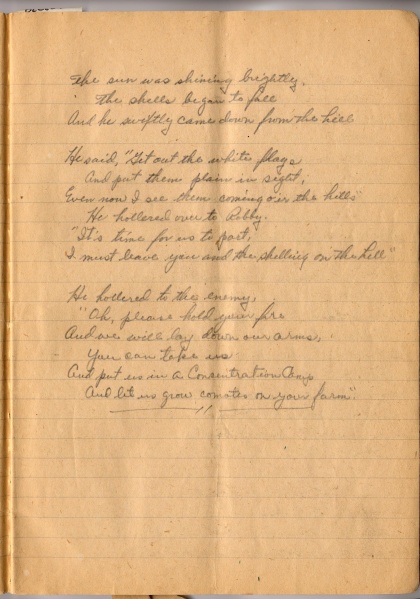 The sun was shining brightly.
The shells began to fall
And he swiftly came down from the hill
He said, "Get out the white flags
And put them plain in sight,
Even now I see them coming o'er the hills"
He hollered over to Bobby.
"It's time for us to part,
I must leave you and the shelling on the hill"
He hollered to the enemy,
"Oh, please hold your fire
And we will lay down our arms,
You can take us
And put us in a Concentration Camp
And let us grow comotes on your farm".